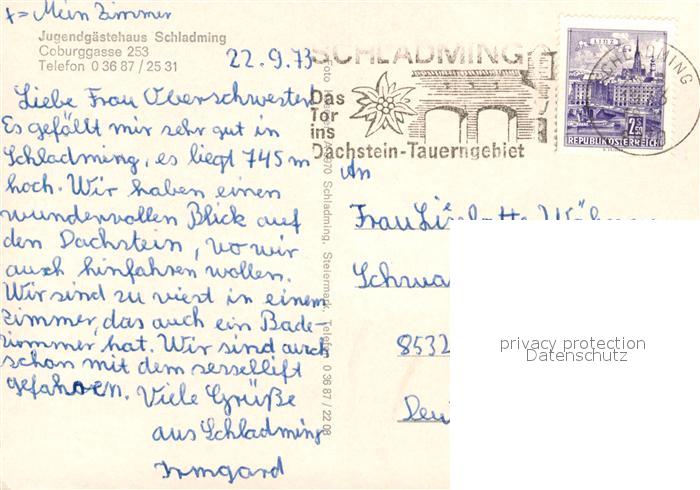 x = Mein Zimmer
Jugendgästehaus Schladming
Coburggasse 253
Telefon 0 36 87 / 25 31
22.9.73
Liebe Frau Oberschwester!
Es gefällt mir sehr gut in
Schladming, es liegt 745 m
hoch. Wir haben einen
wundervollen Blick auf
den Dachstein, wo wir
auch hinfahren wollen.
Wir sind zu viert in einem
Zimmer, das auch ein Bade-
zimmer hat. Wir sind auch
schon mit dem Sessellift
gefahren. Viele Grüße
aus Schladming
Irmgard
8970 Schladming, Steiermark, Telefon 0 36 87 / 22 08
SCHLADMING
Das
Tor
ins
Dachstein-Tauerngebiet
LINZ
2.50
REPUBLIK ÖSTERREICH
SCHLADMING
An
Frau
8532
privacy protection
Datenschutz